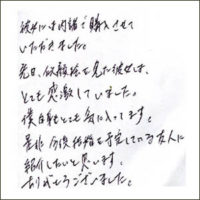 彼女には内緒で購入させて
いただきました。
先日、似顔絵を見た彼女は、
とても感激していました。
僕自身とても気に入ってます。
是非今後結婚を予定している友人に
紹介したいと思います。
ありがとうございました。